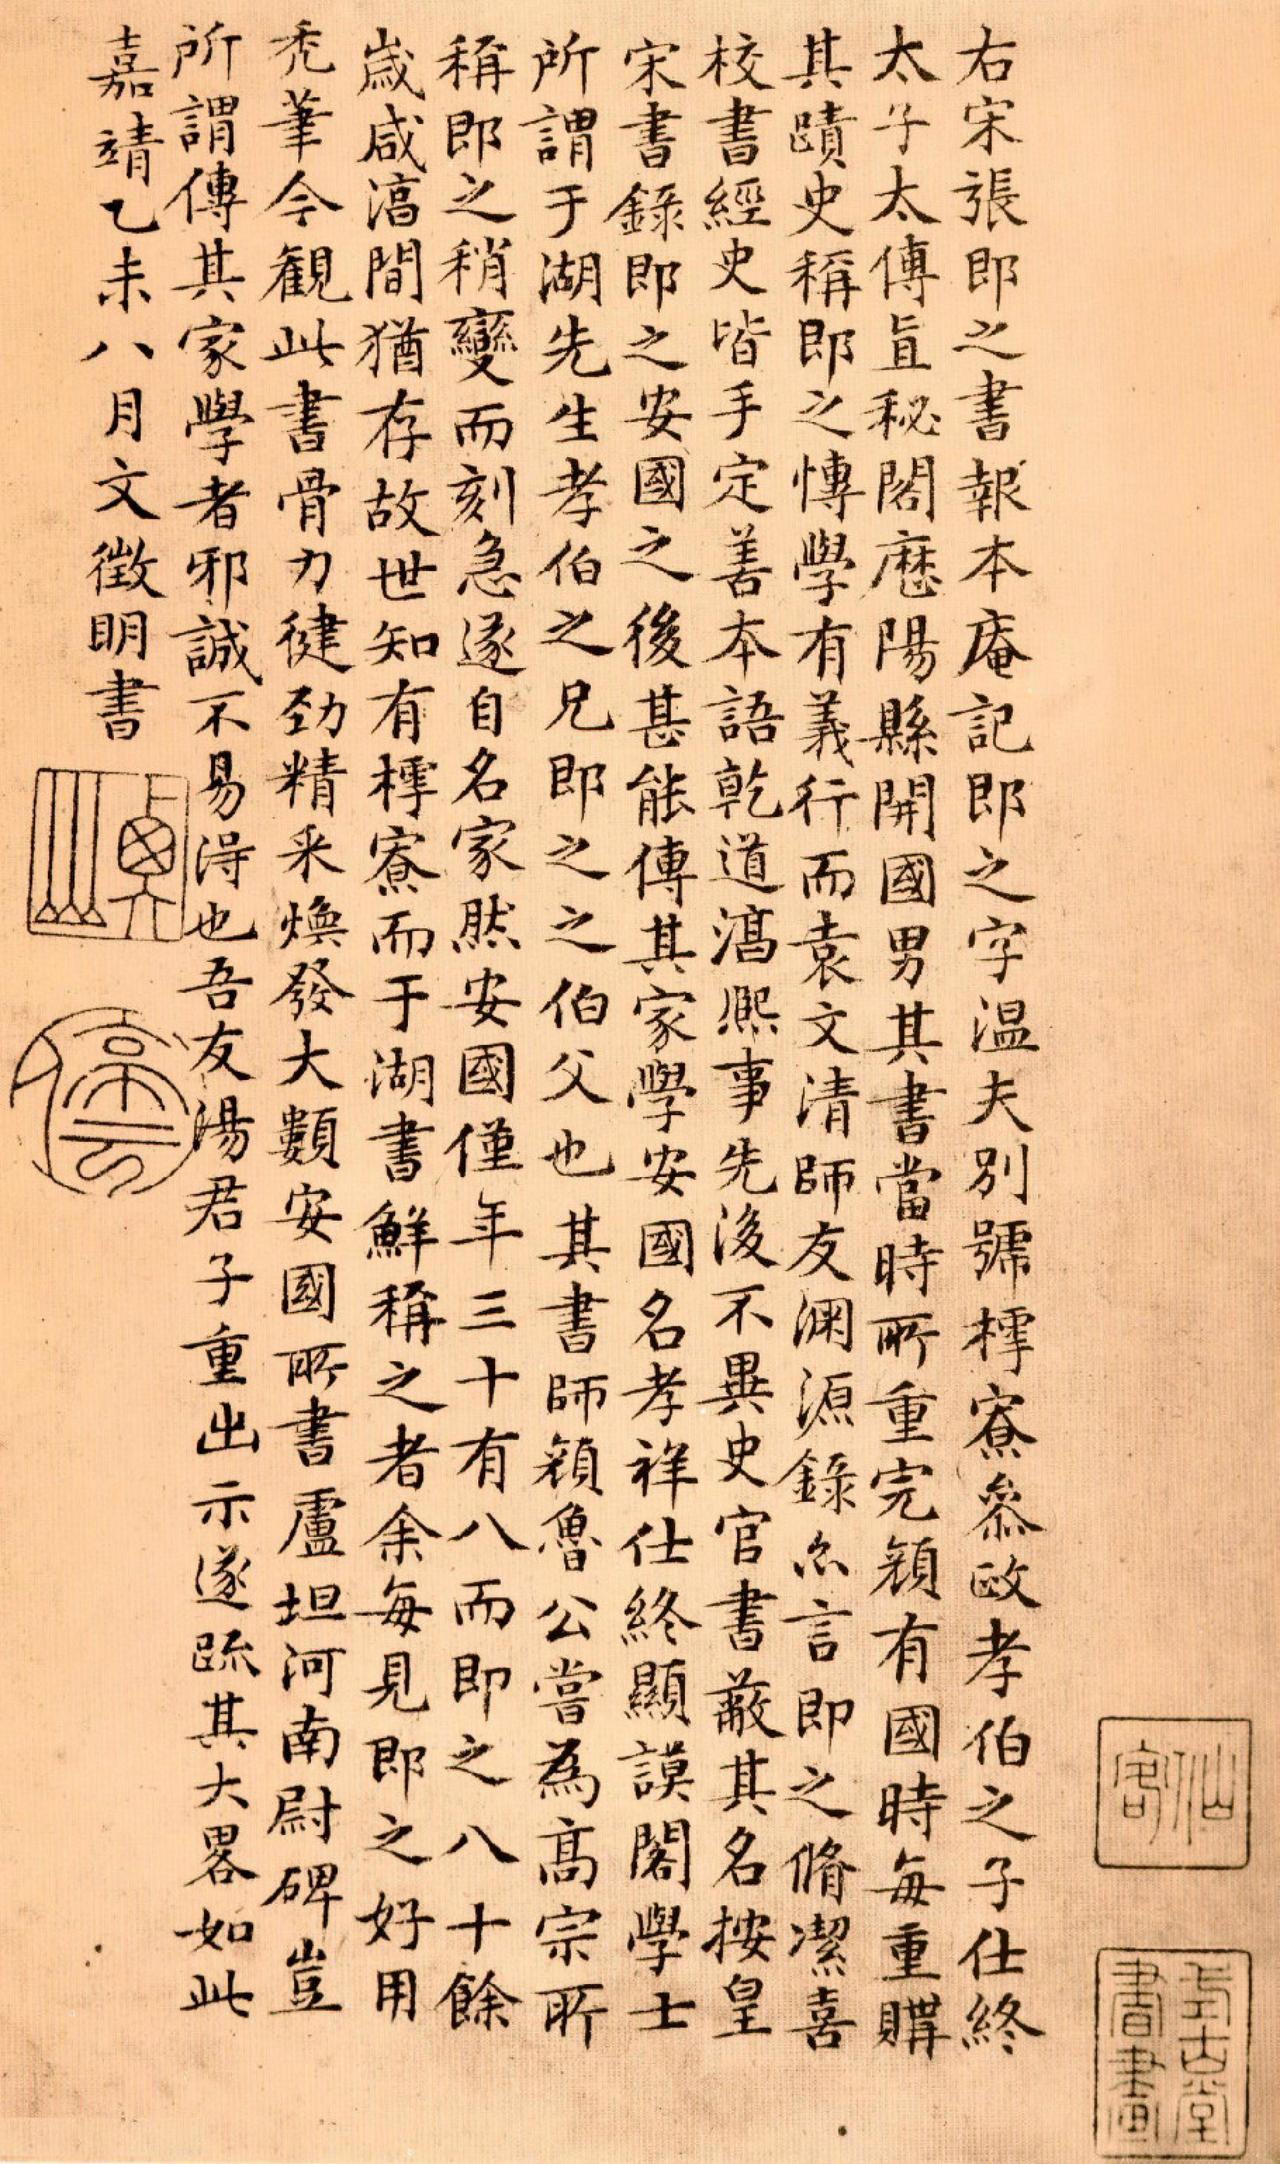 右宋張即之書報本庵記即之字温夫別號樗寮叅政孝伯之子仕終
太子太傅直秘閣歷陽縣開國男其書當時所重完顏有國時每重購
其蹟史稱即之慱學有義行而袁文清師友渊源錄亦言即之脩潔喜
校書經史皆手定善本語乾道淳熈事先後不異史官書蔽其名按皇
宋書錄即之安國之後甚能傳其家學安國名孝祥仕終顯謨閣學士
所謂于湖先生孝伯之兄即之之伯父也其書師顏魯公嘗為髙宗所
稱即之稍變而刻急遂自名家然安國僅年三十有八而即之八十餘
歲咸淳間猶存故世知有樗寮而于湖書鮮稱之者余每見即之好用
禿筆今觀此書骨力健勁精采煥發大類安國所書盧坦河南尉碑豈
所謂傳其家學者邪誠不易得也吾友湯君子重出示遂䟽其大畧如此
嘉靖乙未八月文徵明書
停雲
仙客
式古堂書畫